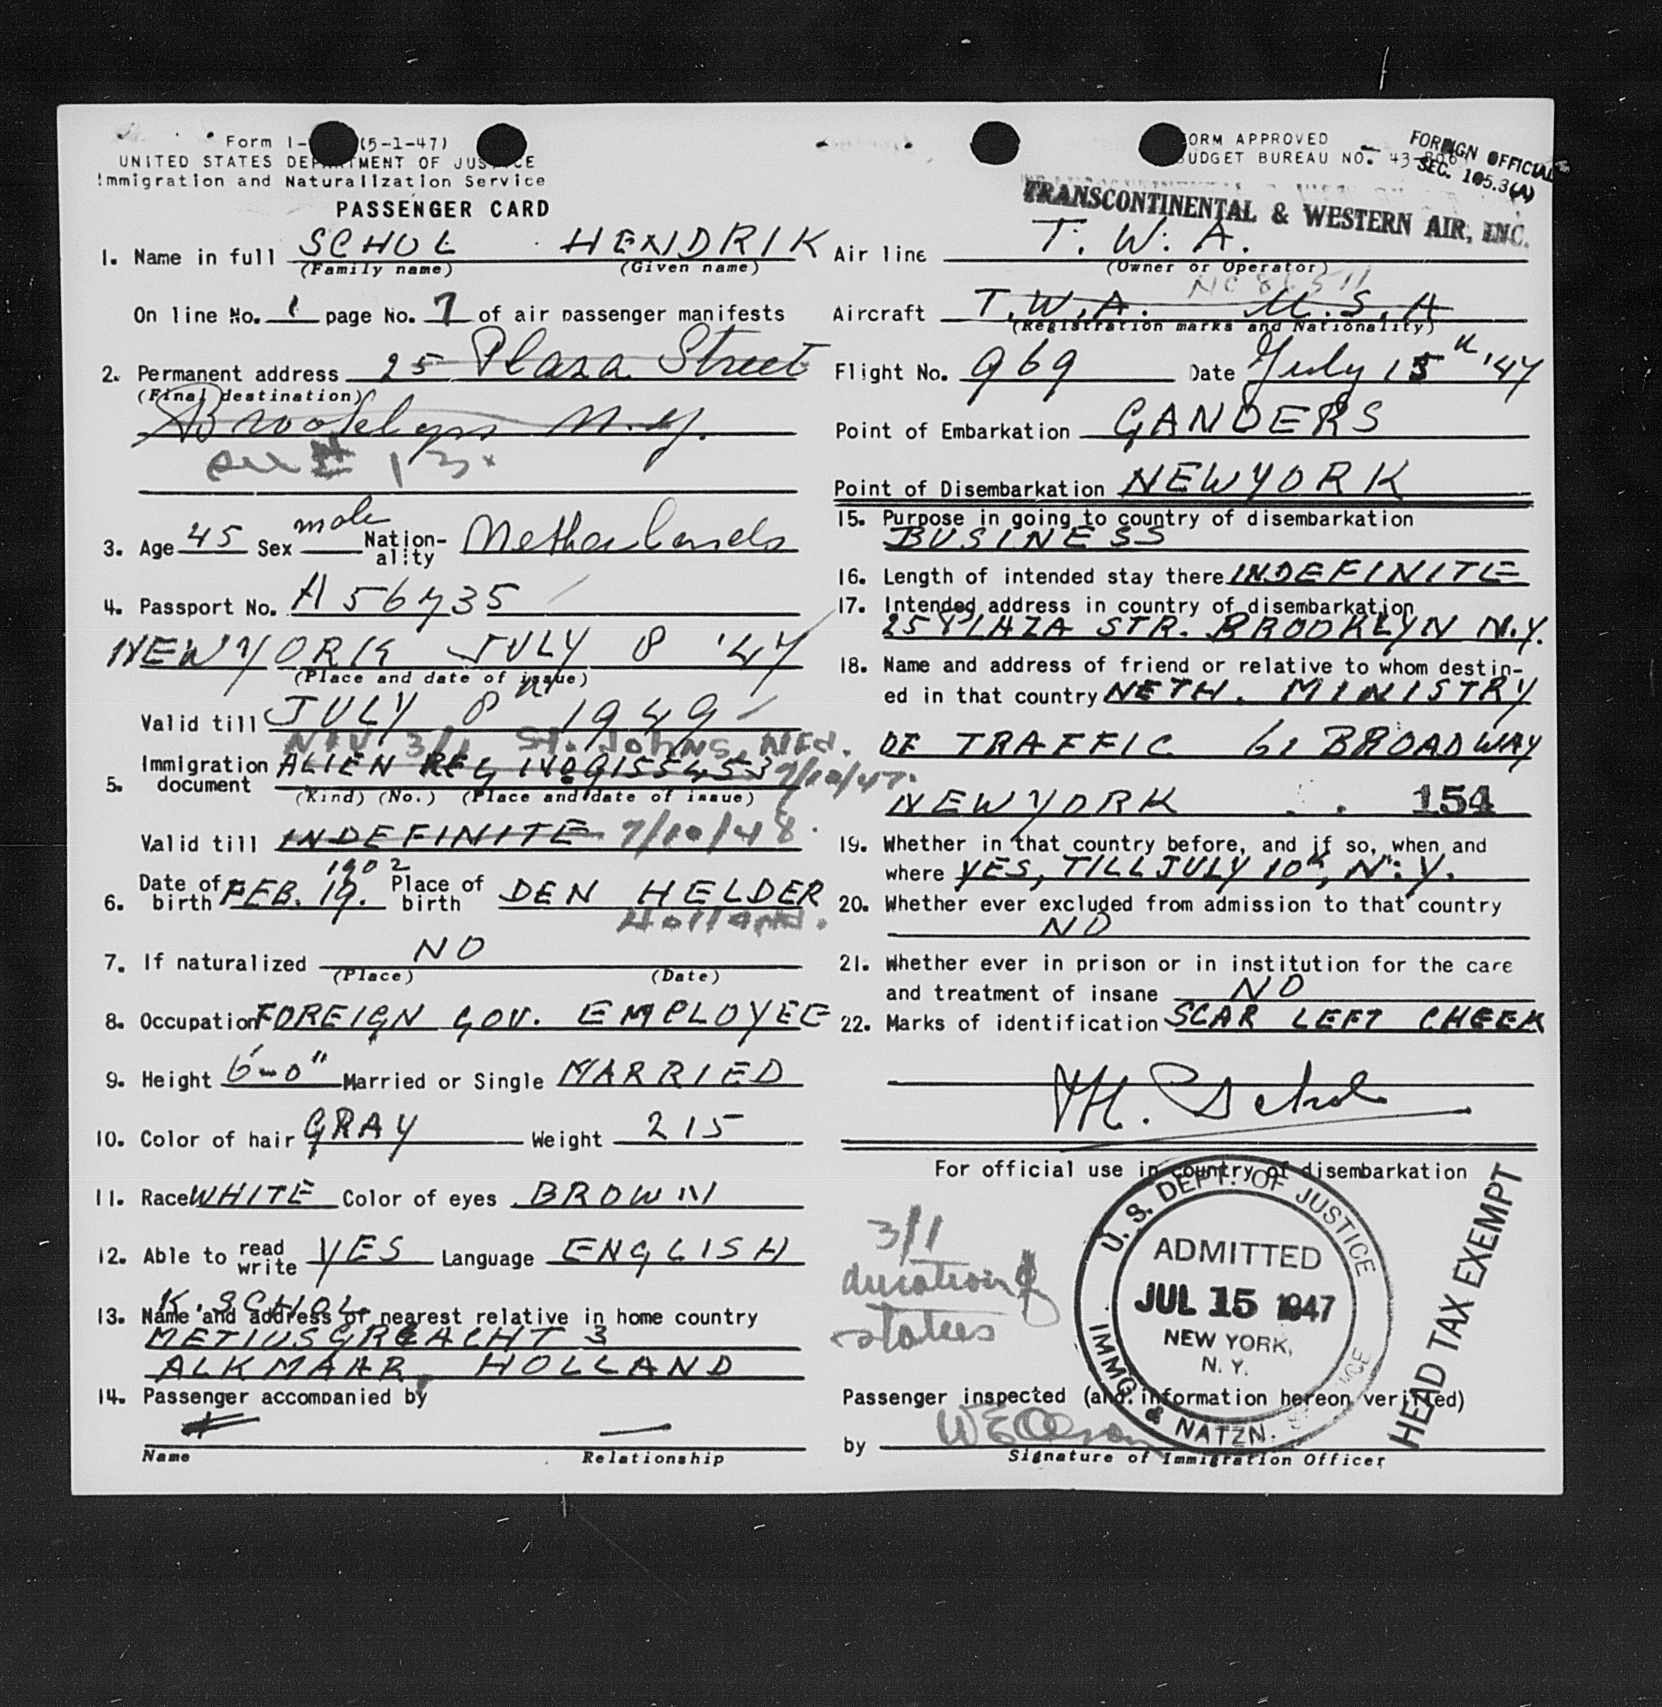 Form I- (5-1-47)
UNITED STATES DEPARTMENT OF JUSTICE
Immigration and Naturalization Service
PASSENGER CARD
FORM APPROVED
BUDGET BUREAU NO. 43-
FOREIGN OFFICIAL
SEC. 105.3(A)
TRANSCONTINENTAL & WESTERN AIR, INC.
1. Name in full SCHOL HENDRIK
(Family name) (Given name)
On line No. 1 page No. 7 of air passenger manifests
2. Permanent address 25 Plaza Street
(Final destination)
Brooklyn N.Y.
13.
3. Age 45 Sex male Nation-ality Netherlands
4. Passport No. A 56735
NEW YORK JULY 8 '47
(Place and date of issue)
Valid till JULY 8th 1949
NIV. 3/1 St. Johns, Nfd.
5. Immigration document ALIEN REG NO 9155453 7/10/47.
(Kind) (No.) (Place and date of issue)
Valid till INDEFINITE 7/10/48.
6. Date of birth FEB. 19. 1902 Place of birth DEN HELDER
Holland.
7. If naturalized NO
(Place) (Date)
8. Occupation FOREIGN GOV. EMPLOYEE
9. Height 6'-0" Married or Single MARRIED
10. Color of hair GRAY Weight 215
11. Race WHITE Color of eyes BROWN
12. Able to read write YES Language ENGLISH
K. SCHOL
13. Name and address of nearest relative in home country
METIUSGRACHT 3
ALKMAAR, HOLLAND
14. Passenger accompanied by
Name Relationship
Air line T. W. A.
(Owner or Operator)
NC 86511
Aircraft T.W.A. U.S.A
(Registration marks and Nationality)
Flight No. 969 Date July 15th '47
Point of Embarkation GANDERS
Point of Disembarkation NEW YORK
15. Purpose in going to country of disembarkation
BUSINESS
16. Length of intended stay there INDEFINITE
17. Intended address in country of disembarkation
25 PLAZA STR. BROOKLYN N.Y.
18. Name and address of friend or relative to whom destin-
ed in that country NETH. MINISTRY
OF TRAFFIC 61 BROADWAY
NEW YORK 154
19. Whether in that country before, and if so, when and
where YES, TILL JULY 10th, N.Y.
20. Whether ever excluded from admission to that country
NO
21. Whether ever in prison or in institution for the care
and treatment of insane NO
22. Marks of identification SCAR LEFT CHEEK
H. Schol
For official use in country of disembarkation
3/1
duration of
status
U. S. DEPT. OF JUSTICE
ADMITTED
JUL 15 1947
NEW YORK,
N. Y.
IMMG. & NATZN. SERVICE
HEAD TAX EXEMPT
Passenger inspected (and information hereon verified)
by
Signature of Immigration Officer